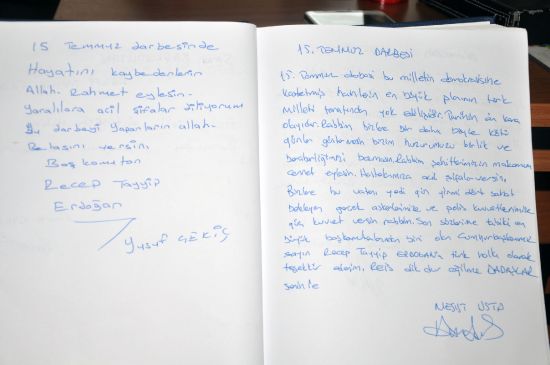 15 Temmuz darbesinde
Hayatını kaybedenlerin
Allah Rahmet eylesin.
Yaralılara acil şifalar diliyorum
Bu darbeyi yapanların allah
Belasını versin.
Baş komutan
Recep Tayyip
Erdoğan
Yusuf GEKİÇ
15. TEMMUZ DARBESİ
15. Temmuz darbesi bu milletin demokrasisine
hainlerin en büyük planının türk
Milleti tarafından yok edilişidir. Tarihin en kara
olayıdır. Rabbim bizlere bir daha böyle kötü
günler göstermesin bizim huzurumuzu birlik ve
beraberliğimizi bozmasın. Rabbim şehitlerimizin makamını
cennet eylesin. Hastalarımıza acil şifalar versin.
Bizlere bu vatanı yedi gün yirmi dört saat
bekleyen gerek askerlerimize ve polis kuvvetlerimize
güç kuvvet versin rabbim. Son sözlerime tarihin en
büyük başkomutanlarından biri olan Cumhurbaşkanımız
sayın Recep Tayyip ERDOĞAN'a türk halkı olarak
teşekkür ederim. REİS dik dur eğilme DADAŞLAR
senin le
NESİT USTA